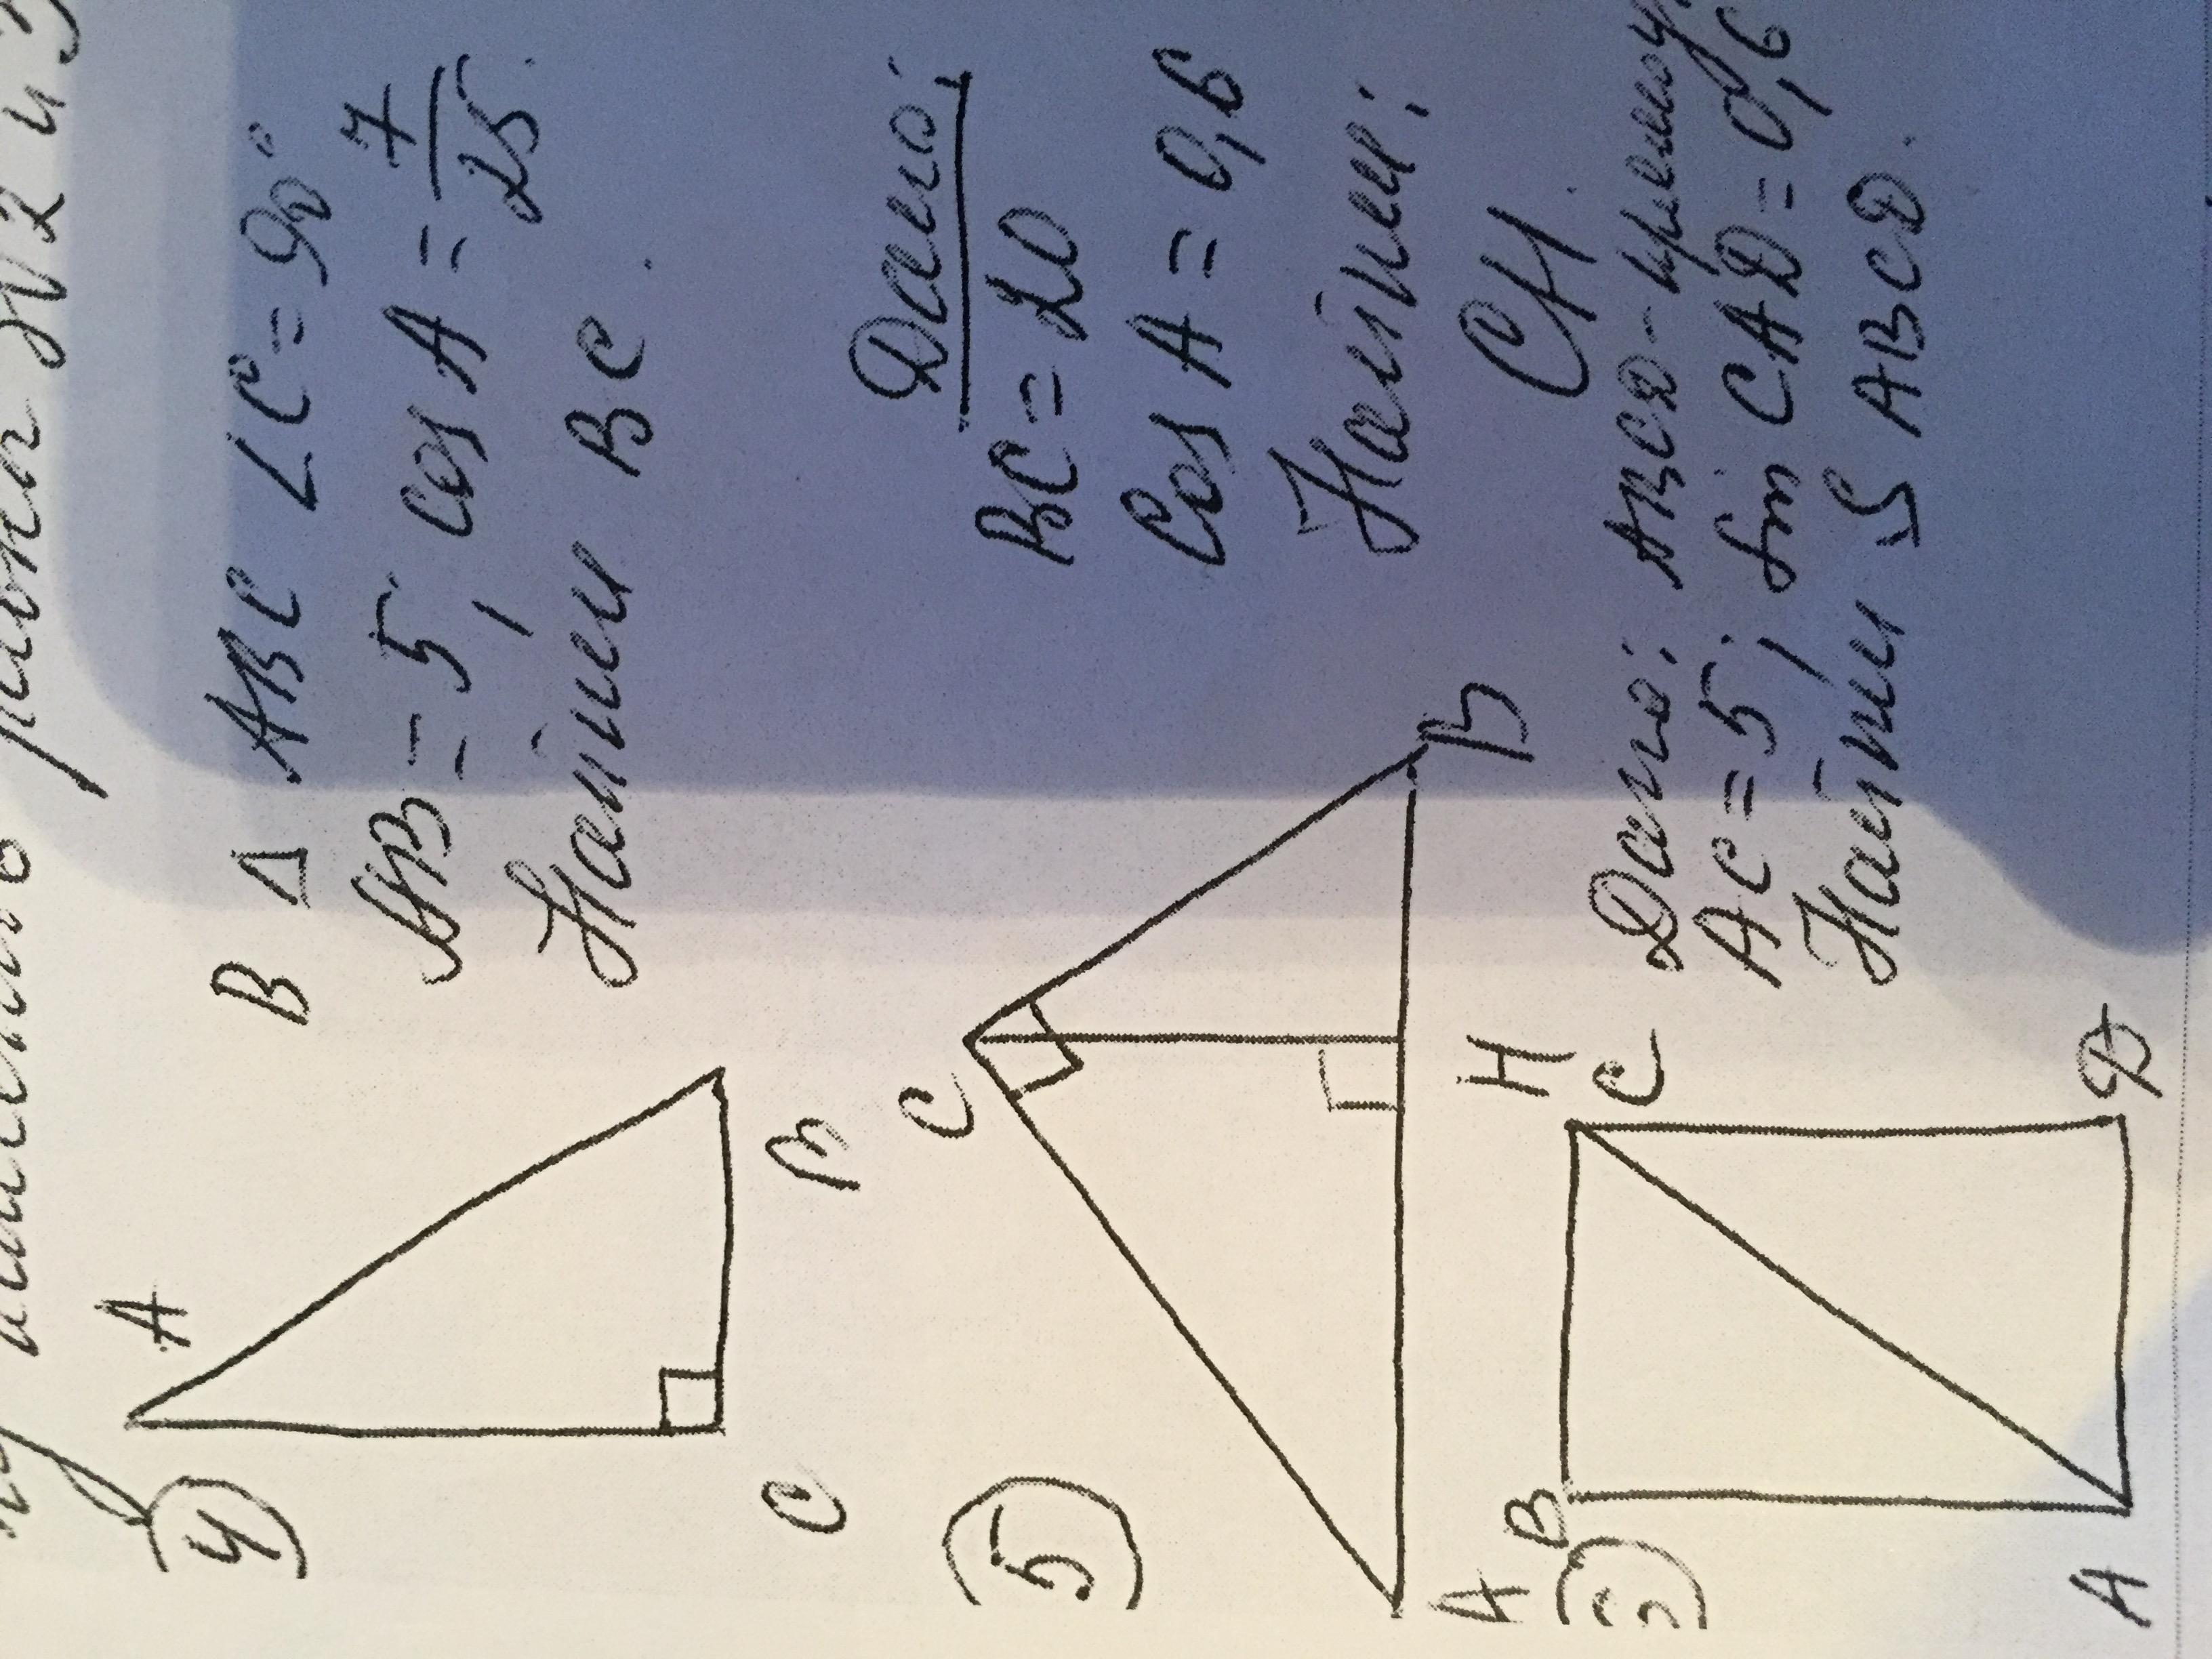 равен
№2 и 3
4
A
C
B
В Δ ABC ∠C = 90°
AB = 5, cos A = 7/25.
Найти BC.
5
C
A
H
B
Дано:
BC = 20
Cos A = 0,6
Найти:
CH.
B
C
A
D
Дано: ABCD -
AC = 5, sin CAD = 0,6
Найти S ABCD.